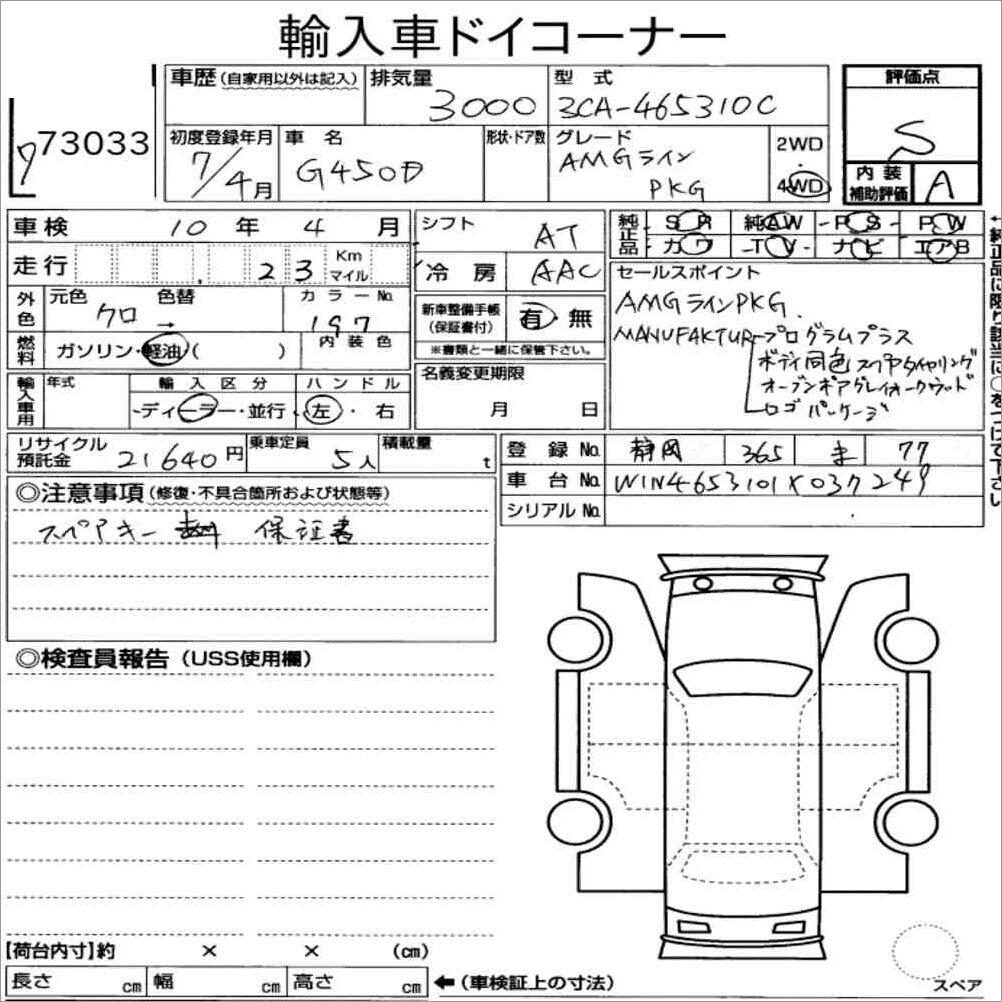 輸入車ドイコーナー
773033
車歴(自家用以外は記入)
排気量 3000
型式 3CA-465310C
評価点 S
初度登録年月 7/4月
車名 G450D
形状・ドア数
グレード AMGライン PKG
2WD
4WD
内装補助評価 A
車検 10年 4月
シフト AT
純正品 SR 純AW PS PW
カワ TV ナビ エアB
走行 23 Km マイル
冷房 AAC
セールスポイント
AMGラインPKG.
MANUFAKTURープログラムプラス
ボディ同色スペアタイヤリング
オープンポアグレイオークウッド
ロゴパッケージ
←純正品に限り該当に○をつけて下さい
外色 元色 クロ → 色替
カラーNo. 197
内装色
新車整備手帳(保証書付) 有 無
※書類と一緒に保管下さい。
燃料 ガソリン・軽油/( )
名義変更期限 月 日
輸入車用 年式
輸入区分 ディーラー・並行
ハンドル 左・右
リサイクル預託金 21640円
乗車定員 5人
積載量 t
登録No. 静岡 365 ま 77
車台No. W1N4653101X037249
シリアルNo.
◎注意事項(修復・不具合箇所および状態等)
スペアキー 保証書
◎検査員報告(USS使用欄)
【荷台内寸】約 × × (cm)
長さ cm 幅 cm 高さ cm ←(車検証上の寸法)
スペア